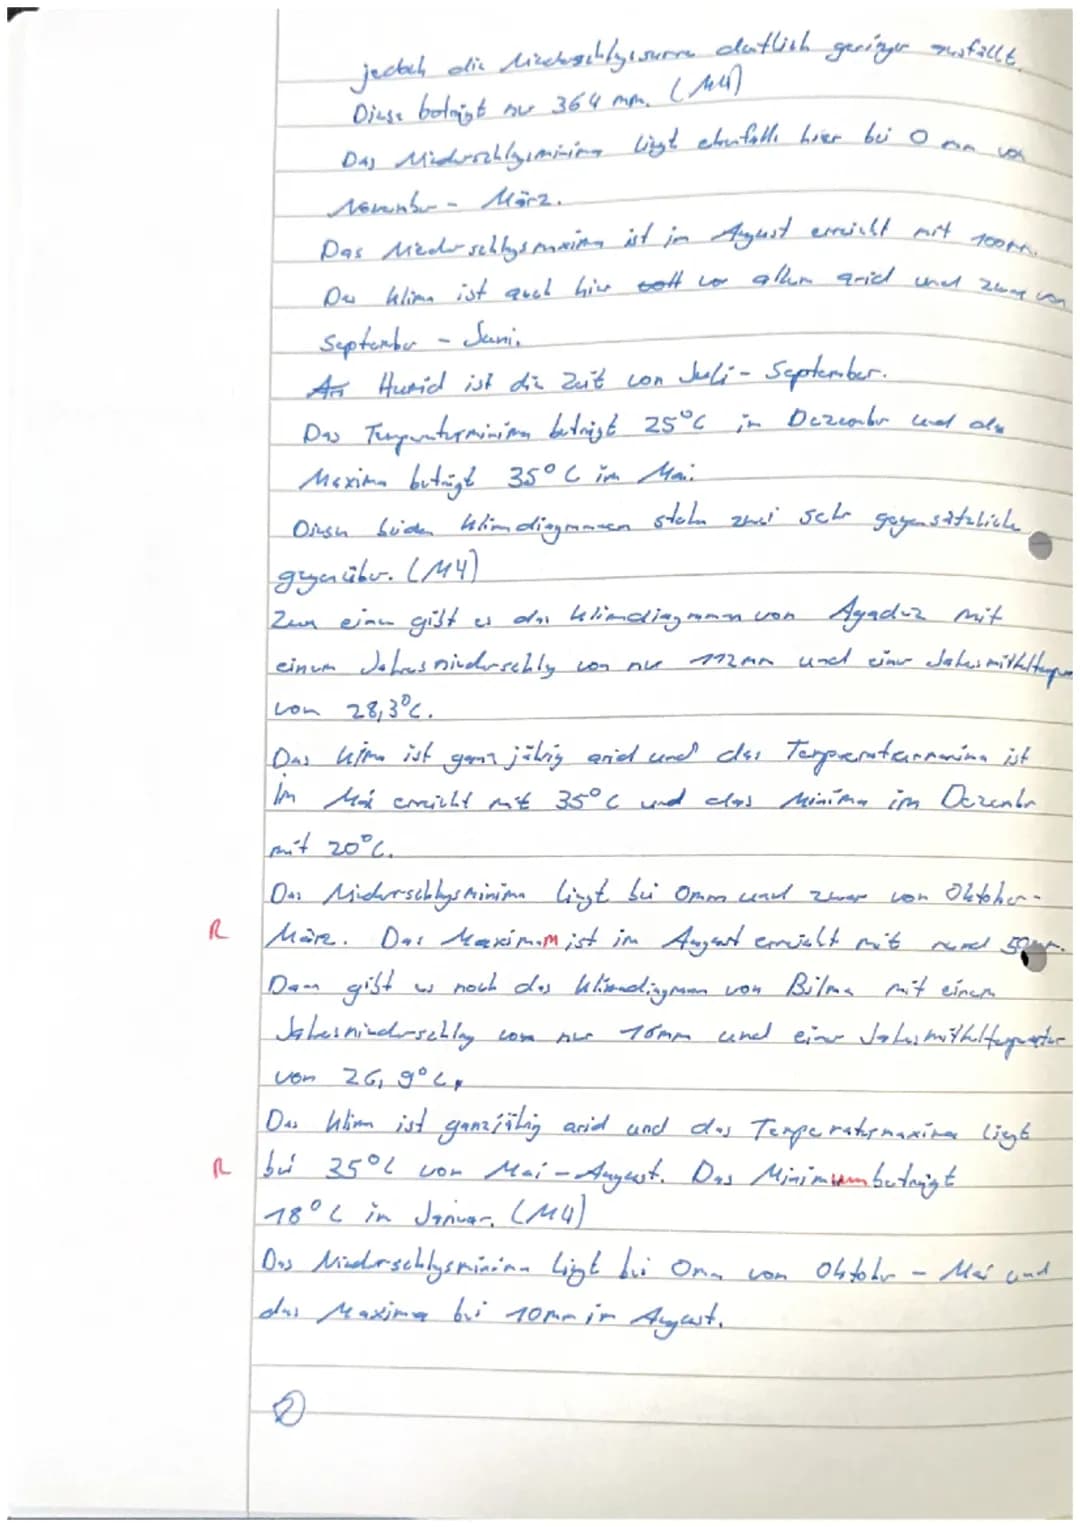 jedoch die Niederschlagssumme deutlich geringer ausfällt.
Diese beträgt nur 364 mm. (M4)
Das Niederschlagsminima liegt ebenfalls hier bei 0 mm von
November - März.
Das Niederschlagsmaxima ist im August erreicht mit 100mm.
Das Klima ist auch hier vor allem arid und zwar von
September - Juni.
Humid ist die Zeit von Juli - September.
Das Temperaturminima beträgt 25°C im Dezember und das
Maxima beträgt 35°C im Mai.
Diesen beiden Klimadiagrammen stehen zwei sehr gegensätzliche
gegenüber. (M4)
Zum einen gibt es das Klimadiagramm von Agadez mit
einem Jahresniederschlag von nur 112mm und einer Jahresmitteltemp
von 28,3°C.
Das Klima ist ganzjährig arid und das Temperaturmaxima ist
im Mai erreicht mit 35°C und das Minima im Dezember
mit 20°C.
Das Niederschlagsminima liegt bei 0mm und zwar von Oktober-
R März. Das Maximum ist im August erreicht mit rund 50mm.
Dann gibt es noch das Klimadiagramm von Bilma mit einem
Jahresniederschlag von nur 16mm und einer Jahresmitteltemperatur
von 26,9°C.
Das Klima ist ganzjährig arid und das Temperaturmaxima liegt
R bei 35°C von Mai - August. Das Minimum beträgt
18°C im Januar. (M4)
Das Niederschlagsminima liegt bei 0mm von Oktober - Mai und
das Maxima bei 10mm im August.
2